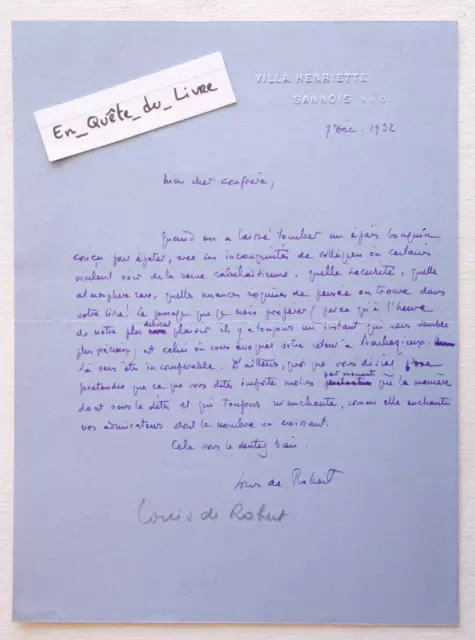 En_Quête_du_Livre
VILLA HENRIETTE
SANNOIS S.&O.
7 Déc. 1932
Mon cher confrère,
Quand on a laissé tomber un épais bouquin
conçu pour épater, avec ses incongruités de collégien où certains
veulent voir de la verve rabelaisienne, quelle sécurité, quelle
atmosphère rare, quelles nuances exquises de pensée on trouve dans
votre livre! Le passage que je vais préférer (parce qu'à l'heure
de notre plus délicat plaisir il y a toujours un instant qui nous semble
plus précieux) est celui où vous évoquez votre retour à
Là vous êtes incomparable. D'ailleurs, quoi que vous disiez
prétendre que ce que vous dites importe moins que la manière
dont vous le dites et qui toujours m'enchante, comme elle enchante
vos admirateurs dont le nombre va croissant.
Cela vous le sentez bien.
Louis de Robert
Louis de Robert